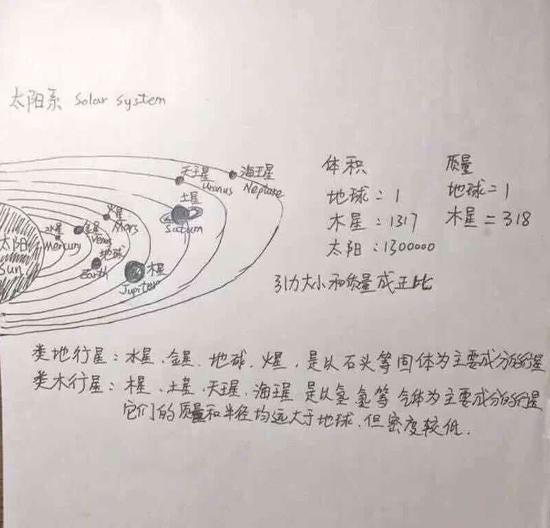 太阳系 Solar system
天王星 Uranus
海王星 Neptune
土星 Saturn
火星 Mars
水星 Mercury
金星 Venus
地球 Earth
木星 Jupiter
太阳 Sun
体积
地球=1
木星:1317
太阳:1300000
质量
地球=1
木星=318
引力大小和质量成正比
类地行星:水星、金星、地球、火星,是以石头等固体为主要成分的行星
类木行星:木星、土星、天王星、海王星是以氢氦等气体为主要成分的行星
它们的质量和半径均远大于地球,但密度较低.